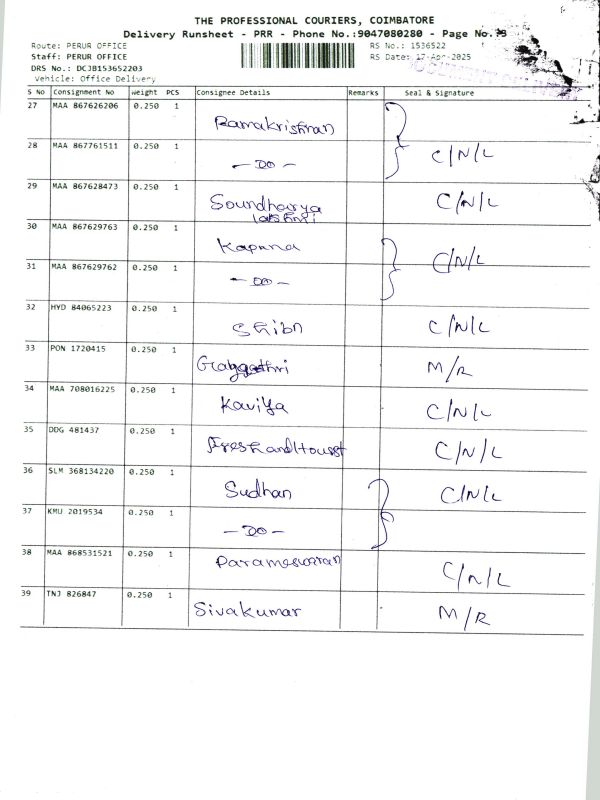 THE PROFESSIONAL COURIERS, COIMBATORE
Delivery Runsheet - PRR - Phone No.:9047080280 - Page No.
Route: PERUR OFFICE RS No.: 1536522
Staff: PERUR OFFICE RS Date: 17-Apr-2025
DRS No.: DCJB153652203
Vehicle: Office Delivery
S No Consignment No Weight PCS Consignee Details Remarks Seal & Signature
27 MAA 867626206 0.250 1 Ramakrishnan
28 MAA 867761511 0.250 1 - DO - C/N/L
29 MAA 867628473 0.250 1 Soundharya C/N/L
lakshmi
30 MAA 867629763 0.250 1 C/N/L
31 MAA 867629762 0.250 1 - DO -
32 HYD 84065223 0.250 1 Shibn C/N/L
33 PON 1720415 0.250 1 M/R
34 MAA 708016225 0.250 1 Kaviya C/N/L
35 DDG 481437 0.250 1 C/N/L
36 SLM 368134220 0.250 1 Sudhan C/N/L
37 KMU 2019534 0.250 1 - DO -
38 MAA 868531521 0.250 1 Parameswaran C/N/L
39 TNJ 826847 0.250 1 Sivakumar M/R